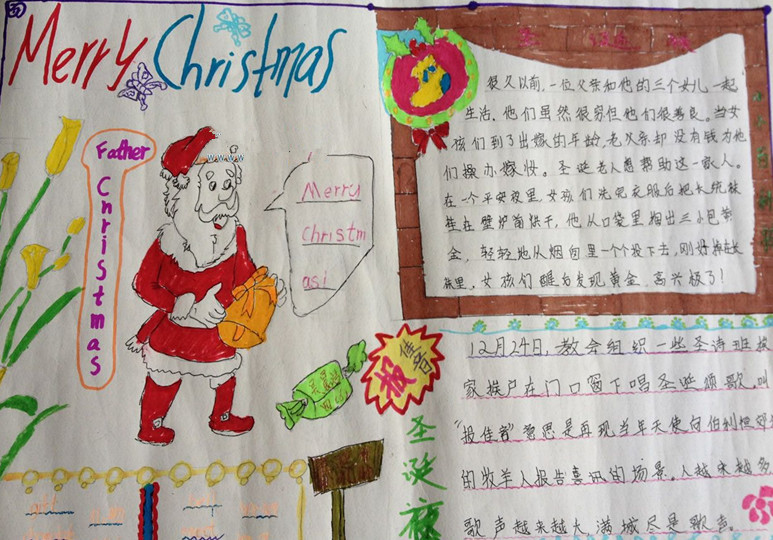 五
Merry Christmas
Father
Christmas
Merry
christm
as!
很久以前,一位父亲和他的三个女儿一起
生活,他们虽然很穷但他们很善良。当女
孩们到了出嫁的年龄,老父亲却没有钱为他
们操办嫁妆。圣诞老人想帮助这一家人。
在一个平安夜里,女孩们洗完衣服后把长统袜
挂在壁炉前烘干,他从口袋里掏出三小包黄
金,轻轻地从烟囱里一个个投下去,刚好掉在长
袜里,女孩们醒后发现黄金,高兴极了!
报佳音
圣诞夜
12月24日,教会组织一些圣诗班挨
家挨户在门口窗下唱圣诞颂歌。叫
"报佳音"意思是再现当年天使向伯利恒郊
的牧羊人报告喜讯的场景。人越来越多
歌声越来越大,满城尽是歌声。